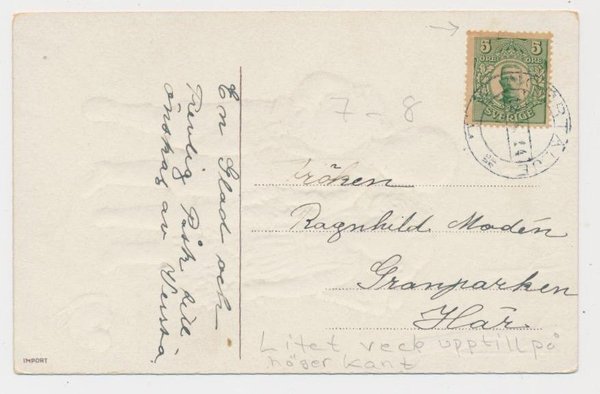 En Glad och
Trevlig Påsk till
önskas av
5 5
ÖRE ÖRE
SVERIGE
7-8
Fröken
Ragnhild Modén
Granparken
Här.
Litet veck upptill på
höger kant
IMPORT